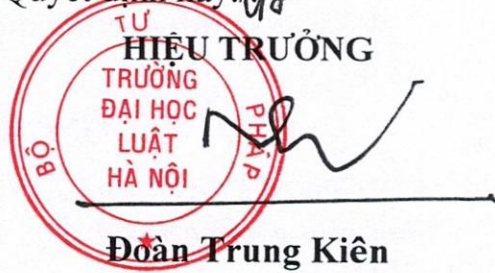 HIỆU TRƯỞNG
BỘ TƯ PHÁP
TRƯỜNG
ĐẠI HỌC
LUẬT
HÀ NỘI
Đoàn Trung Kiên